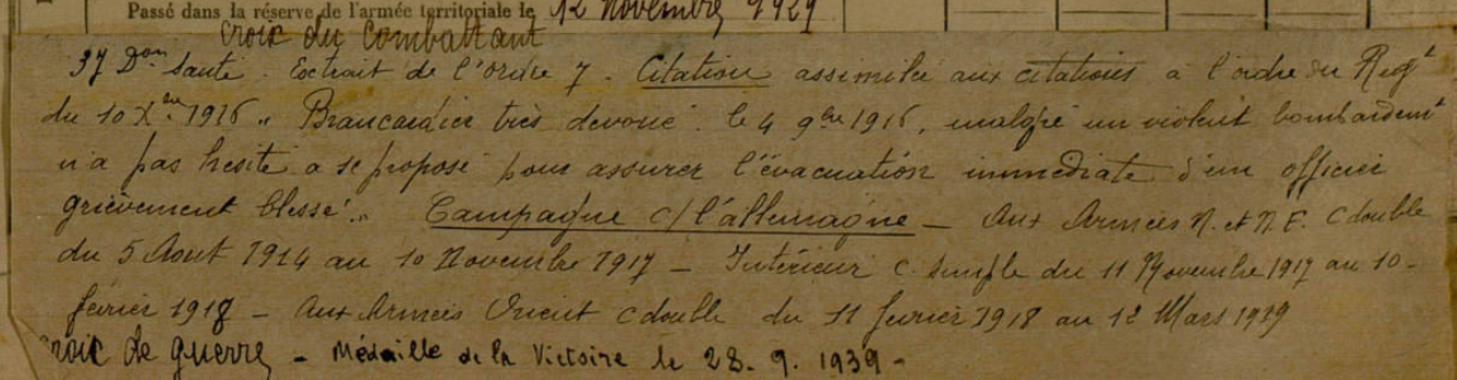 Passé dans la réserve de l'armée territoriale le 12 novembre 1929
Croix du Combattant
37 Don Santé. Extrait de l'ordre 7. Citation assimilée aux citations a l'ordre du Regt
du 10 Xbre 1916 " Brancardier très dévoué. le 4 9bre 1916, malgré un violent bombardemt
n'a pas hesité a se proposé pour assurer l'évacuation immédiate d'un officier
grièvement blessé". Campagne c/ l'allemagne - Aux Armées N. et N.E. C double
du 5 Aout 1914 au 10 Novembre 1917 - Intérieur C. simple du 11 Novembre 1917 au 10-
février 1918 - Aux Armées Orient C double du 11 fevrier 1918 au 12 Mars 1919
Croix de guerre - Médaille de la Victoire le 28.9.1939 -